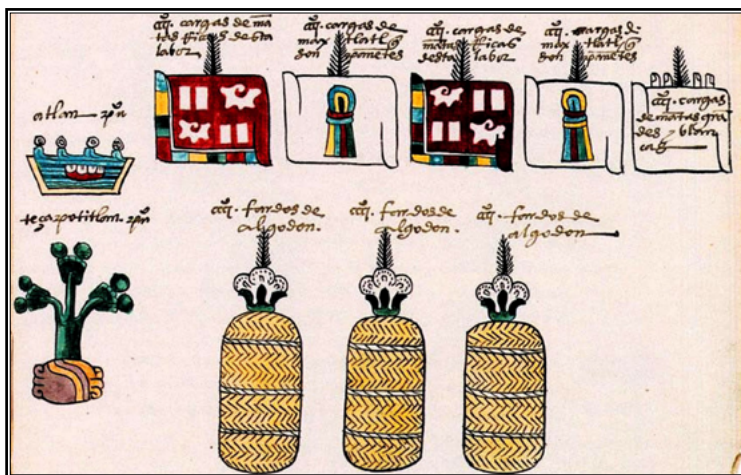 cccc. cargas de mā
tas Ricas desta
labor
cccc. cargas de
maxtlatl q̄
son pañetes
cccc. cargas de
mātas Ricas
desta labor
cccc. cargas de
maxtlatl q̄
son pañetes
cccc. cargas
de mātas gra
des blan
cas
atlan. puo
teçapotitlan. puo
cccc. fardos de
algodon.
cccc. fardos de
algodon.
cccc. fardos de
algodon